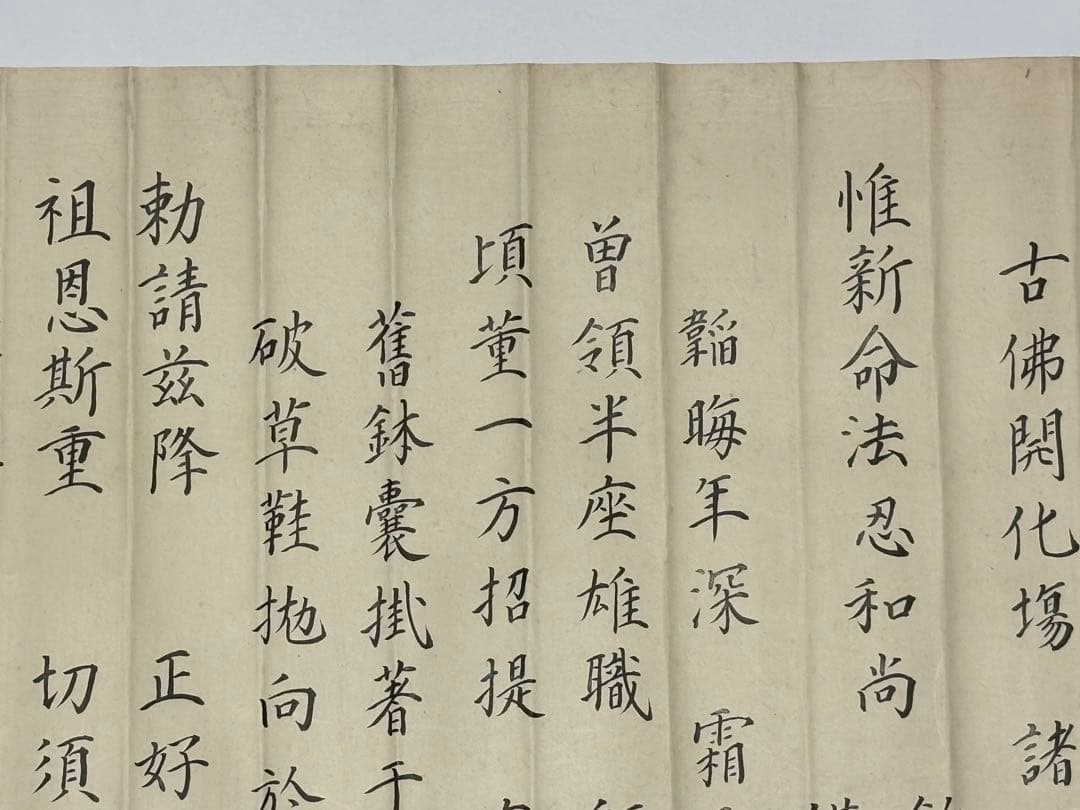 古佛開化塲　諸
惟新命法忍和尚
韜晦年深　霜
曽領半座雄職
頃董一方招提
舊鉢嚢掛著于
破草鞋抛向於
勅請茲降　正好
祖恩斯重　切須